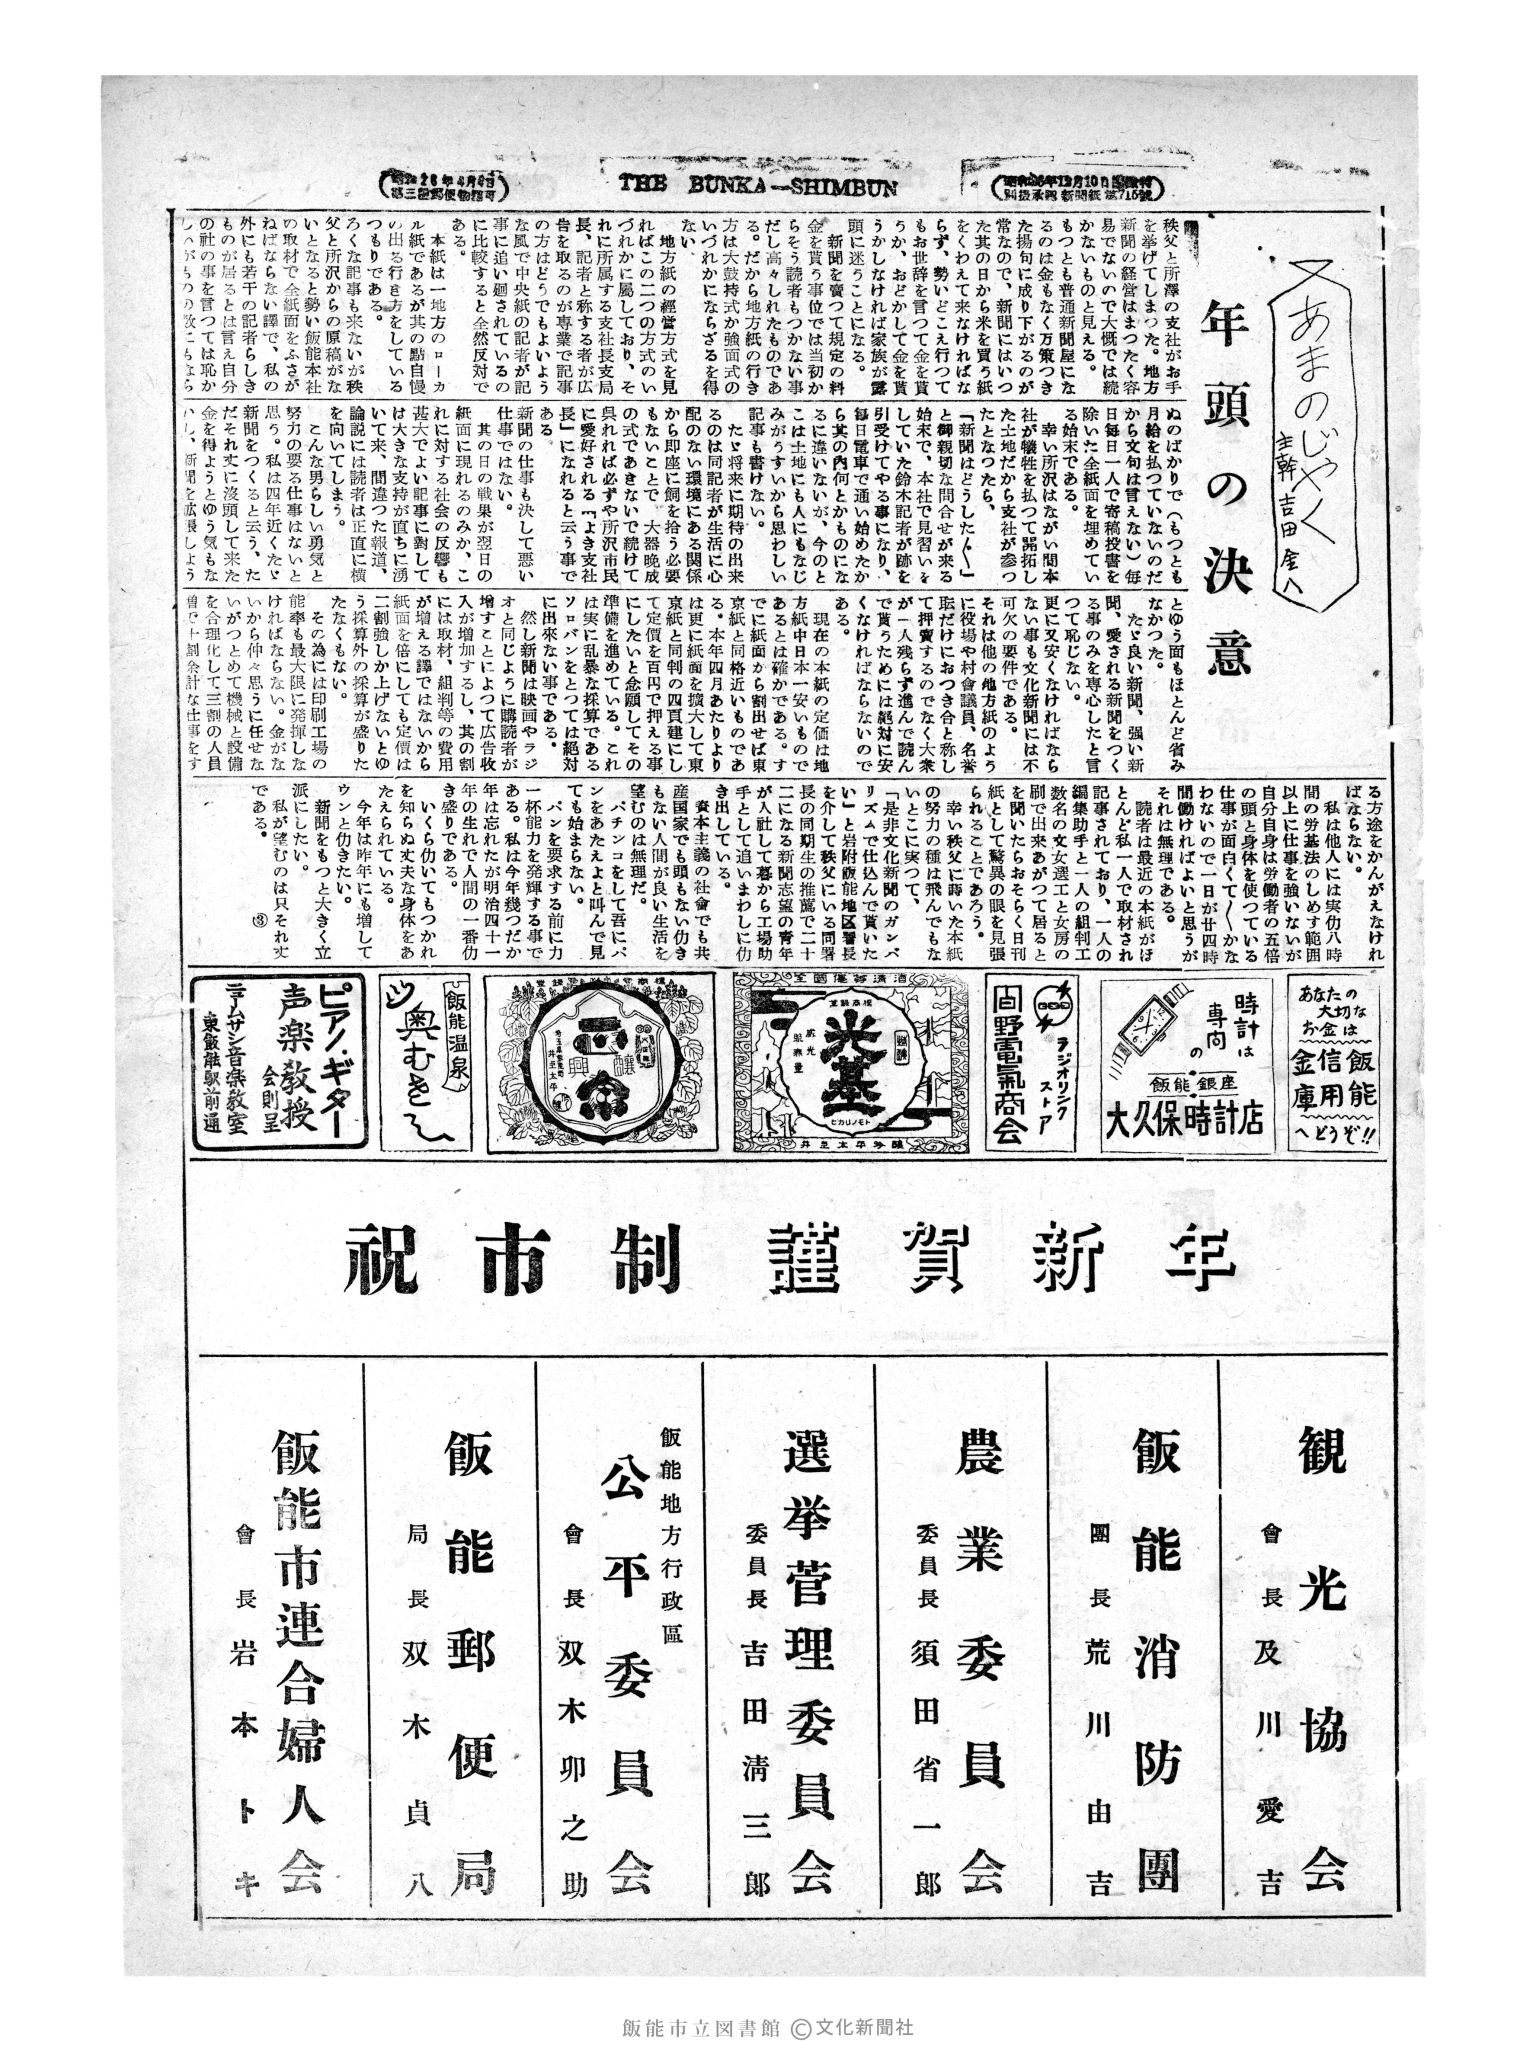 THE BUNKA—SHIMBUN
又あまのじやく
主幹 吉田金八
年頭の決意
秩父と所澤の支社がお手
を挙げてしまつた。地方
新聞の経営はまつたく容
易でないので大慨では続
かないものと見える。
もつとも普通新聞屋にな
るのは金もなく万策つき
た揚句に成り下がるのが
常なので、新聞にはいつ
た其の日から米を買う紙
をくわえて来なければな
らず、勢いどこえ行つて
もお世辞を言つて金を貰
うか、おどかして金を貰
うかしなければ家族が露
頭に迷うことになる。
新聞を賣つて規定の料
金を貰う事位では当初か
らそう読者もつかない事
だし高々しれたものであ
る。だから地方紙の行き
方は大鼓持式か強面式の
いづれかにならざるを得
ない。
地方紙の經営方式を見
ればこの二つの方式のい
づれかに属しており、そ
れに所属する支社長支局
長、記者と称する者が広
告を取るのが専業で記事
の方はどうでもよいよう
な風で中央紙の記者が記
事に追い廻されているの
に比較すると全然反対で
ある。
本紙は一地方のローカ
ル紙であるが其の點自慢
の出る行き方をしている
つもりである。
ろくな記事も来ないが秩
父と所沢からの原稿がな
いとなると勢い飯能本社
の取材で全紙面をふさが
ねばならない譯で、私の
外にも若干の記者らしき
ものが居るとは言え自分
の社の事を言つては恥か
しいがものの数にもなら
ぬのばかりで（もつとも
月給を払つていないのだ
から文句は言えない）毎
日毎日一人で寄稿投書を
除いた全紙面を埋めてい
る始末である。
幸い所沢はながい間本
社が犠牲を払つて開拓し
た土地だから支社が参つ
たとなつたら、
「新聞はどうした〱」
と御親切な問合せが来る
始末で、本社で見習いを
していた鈴木記者が跡を
引受けてやる事になり、
毎日電車で通い始めたか
ら其の内何とかものにな
るに違いないが、今のと
こは土地にも人にもなじ
みがうすいから思わしい
記事も書けない。
たゞ将来に期待の出来
るのは同記者が生活に心
配のない環境にある関係
から即座に飼を拾う必要
もないことで、大器晩成
の式であきないで続けて
呉れれば必ずや所沢市民
に愛好される「よき支社
長」になれると云う事で
ある。
新聞の仕事も決して悪い
仕事ではない。
其の日の戦果が翌日の
紙面に現れるのみか、こ
れに対する社会の反響も
甚大でよい記事に対して
は大きな支持が直ちに湧
いて来、間違つた報道、
論説には読者は正直に横
を向いてしまう。
こんな男らしい勇気と
努力の要る仕事はないと
思う。私は四年近くたゞ
新聞をつくると云う、た
だそれ丈に沒頭して来た
金を得ようとゆう気もな
いし、新聞を拡張しよう
とゆう面もほとんど省み
なかつた。
たゞ良い新聞、强い新
聞、愛される新聞をつく
る事のみを専心したと言
つて恥じない。
更に又安くなければなら
ない事も文化新聞には不
可欠の要件である。
それは他の地方紙のよう
に役場や村會議員、名誉
耺だけにおつき合と称し
て押賣するのでなく大衆
が一人残らず進んで読ん
で貰うためには絶対に安
くなければならないので
ある。
現在の本紙の定価は地
方紙中日本一安いもので
あるとは確かである。す
でに紙面から割出せば東
京紙と同格近いものであ
る。本年四月あたりより
は更に紙面を擴大して東
京紙と同判の四頁建にし
て定價を百円で押える事
にしたいと念願してその
準備を進めている。これ
は実に乱暴な採算である
ソロバンをとつては絶対
に出来ない事である。
然し新聞は映画やラジ
オと同じように購読者が
増すことによつて広告收
入が増加するし、其の割
には取材、組判等の費用
が増える譯ではないから
紙面を倍にしても定價は
二割強しか上げないとゆ
う採算外の採算が盛りた
たなくもない。
その為には印刷工場の
能率も最大限に発揮しな
ければならない。金がな
いから仲々思うに任せな
いがつとめて機械と設備
を合理化して三割の人員
増で十割余計な仕事をす
る方途をかんがえなけれ
ばならない。
私は他人には実仂八時
間の労基法のしめす範囲
以上に仕事を強いないが
自分自身は労働者の五倍
の頭と身体を使つている
仕事が面白くて〱かな
わないので一日が廿四時
間働ければよいと思うが
それは無理である。
読者は最近の本紙がほ
とんど私一人で取材され
記事されており、一人の
編集助手と一人の組判工
数名の文女選工と女房の
刷で出来あがつて居ると
を聞いたらおそらく日刊
紙として驚異の眼を見張
られることであろう。
幸い秩父に蒔いた本紙
の努力の種は飛んでもな
いとこに実つて、
「是非文化新聞のガンバ
リズムで仕込んで貰いた
い」と岩附飯能地区署長
を介して秩父にいる同署
長の同期生の推薦で二十
二になる新聞志望の青年
が入社して暮から工場助
手として追いまわしに仂
き出している。
資本主義の社會でも共
産国家でも頭もない仂き
もない人間が良い生活を
望むのは無理だ。
パチンコをして吾にパ
ンをあたえよと叫んで見
ても始まらない。
パンを要求する前に力
一杯能力を発輝する事で
ある。私は今年幾つだか
年は忘れたが明治四十一
年の生れで人間の一番仂
き盛りである。
いくら仂いてもつかれ
を知らぬ丈夫な身体をあ
たえられている。
今年は昨年にも増して
ウンと仂きたい。
新聞をもつと大きく立
派にしたい。
私が望むのは只それ丈
である。 ③
あなたの
大切な
お金は
飯能
信用
金庫
へどうぞ!!
時計は
専門
の
飯能銀座
大久保時計店
ラジオリンク
ストア
間野電氣商会
全國優等清酒
登録商標
光基
ヒカリノモト
井至太平吟釀
登録商標
興釀
飯能温泉
奥むさし
ピアノ.ギター
声楽教授
会則呈
ニームサシ音楽教室
東飯能駅前通
祝市制 謹賀新年
観光協会
會長 及川愛吉
飯能消防團
團長 荒川由吉
農業委員会
委員長 須田省一郎
選挙菅理委員会
委員長 吉田淸三郎
飯能地方行政區
公平委員会
會長 双木卯之助
飯能郵便局
局長 双木貞八
飯能市連合婦人会
會長 岩本トキ
飯能市立図書館 ©文化新聞社